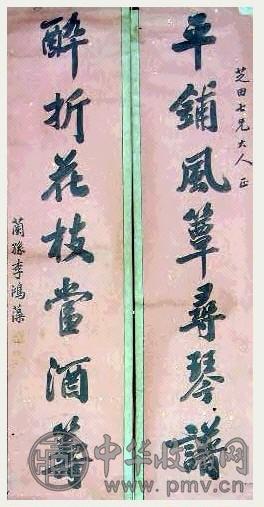 芝田七兄大人正
平鋪風簟尋琴譜
醉折花枝當酒籌
蘭孫李鴻藻
中华收藏网
www.pmv.cn